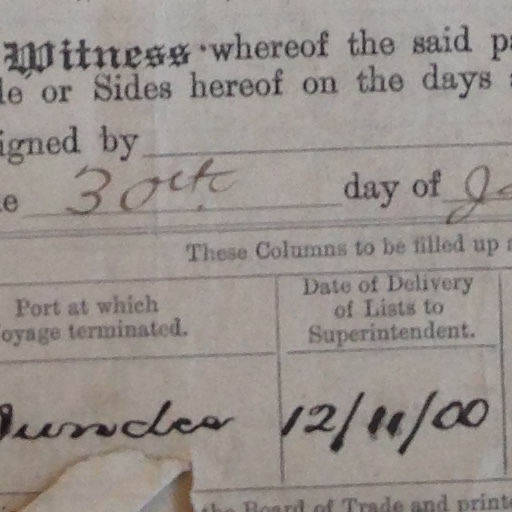 Witness whereof the said
or Sides hereof on the days
igned by
30 day of
These Columns to be filled up
Port at which
oyage terminated.
Date of Delivery
of Lists to
Superintendent.
Dundee 12/11/00
the Board of Trade and print